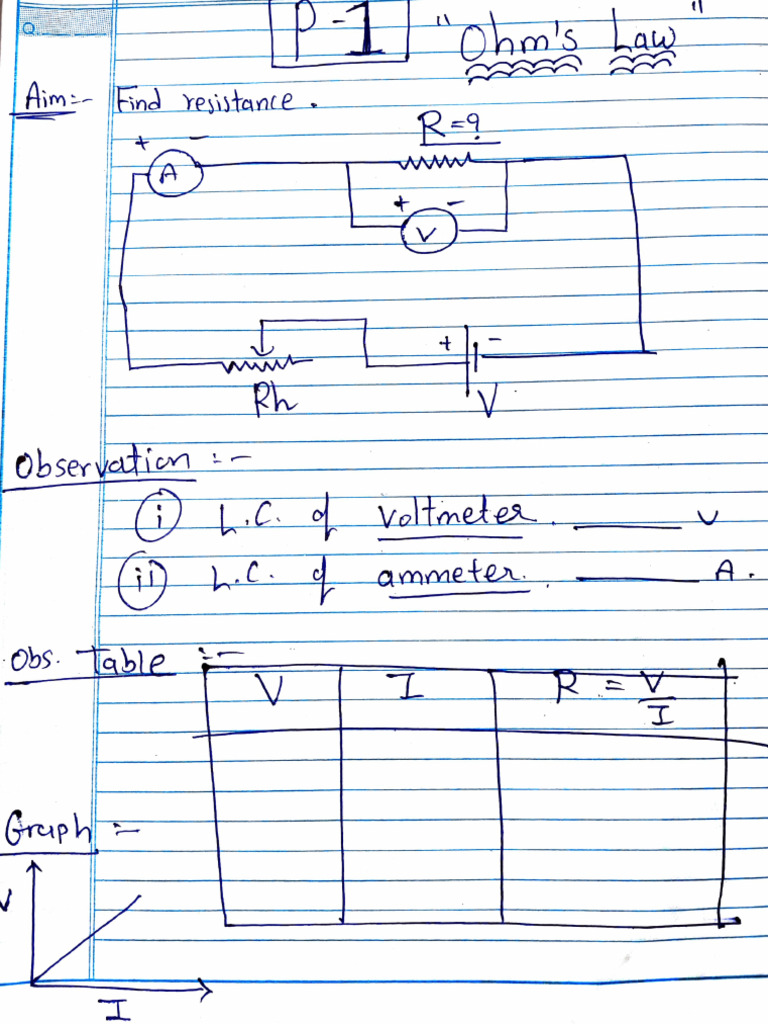 P-1 "Ohm's Law"
Aim:- Find resistance.
R=?
+ -
A
+ -
V
+ -
Rh
V
Observation :-
(i) L.C. of voltmeter. ______ V
(ii) L.C. of ammeter. ______ A.
Obs. Table :-
V I R = V/I
Graph :-
V
I